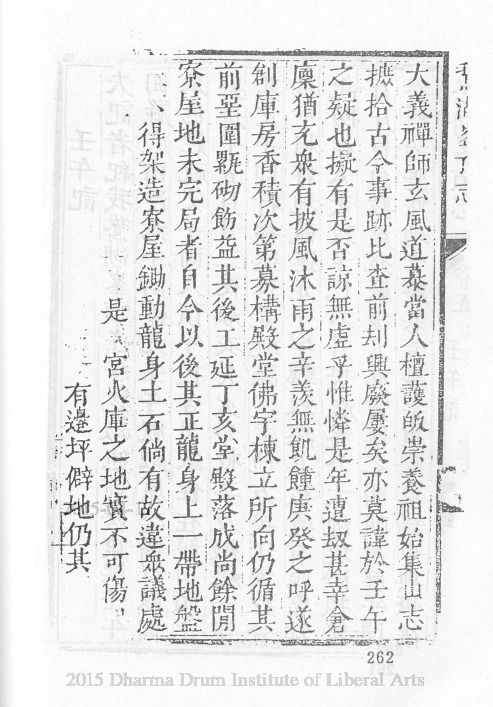 大義禪師玄風道慕當人檀護皈崇養祖始集山志
摭拾古今事跡比查前刦興廢屢矣亦莫諱於壬午
之疑也擬有是否諒無虛乎惟憐是年遭刼甚幸倉
廩猶充衆有披風沐雨之辛羨無飢饉庚癸之呼遂
創庫房香積次第募構殿堂佛宇棟立所向仍循其
前堊圍甃砌飭益其後工延丁亥堂殿落成尚餘閒
寮屋地未完局者自今以後其正龍身上一帶地盤
得架造寮屋鋤動龍身土石倘有故違衆議處
是 宮火庫之地實不可傷
有邊坪僻地仍其
262
2015 Dharma Drum Institute of Liberal Arts